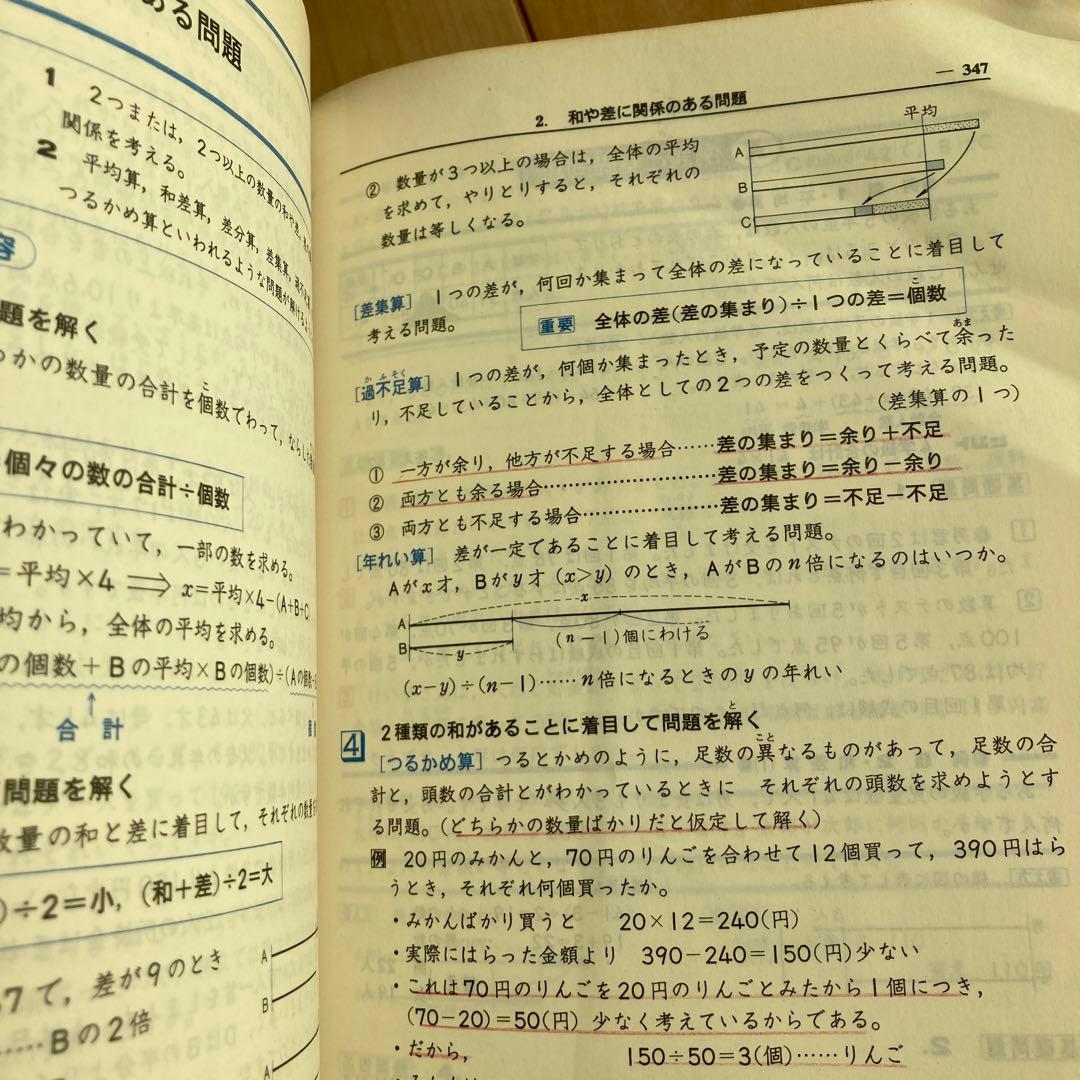 ある問題
1 2つまたは，2つ以上の数量の和や差，
関係を考える。
2 平均算，和差算，差分算，差集算，
つるかめ算といわれるような問題が解けるように
容
題を解く
つかの数量の合計を個数でわって，ならした
個々の数の合計÷個数
わかっていて，一部の数を求める。
＝平均×4 ⟹ x＝平均×4−(A+B+C)
均から，全体の平均を求める。
の個数＋Bの平均×Bの個数)÷(Aの個数
合計
問題を解く
数量の和と差に着目して，それぞれの数量
)÷2＝小，(和＋差)÷2＝大
37て，差が9のとき
……Bの2倍
A
B
A
2. 和や差に関係のある問題 — 347
② 数量が3つ以上の場合は，全体の平均
を求めて，やりとりすると，それぞれの
数量は等しくなる。
平均
A
B
C
[差集算] 1つの差が，何回か集まって全体の差になっていることに着目して
考える問題。
重要 全体の差(差の集まり)÷1つの差＝個数
[過不足算] 1つの差が，何個か集まったとき，予定の数量とくらべて余った
り，不足していることから，全体としての2つの差をつくって考える問題。
(差集算の1つ)
① 一方が余り，他方が不足する場合……差の集まり＝余り＋不足
② 両方とも余る場合……………………差の集まり＝余り−余り
③ 両方とも不足する場合………………差の集まり＝不足−不足
[年れい算] 差が一定であることに着目して考える問題。
Aがx才，Bがy才(x>y)のとき，AがBのn倍になるのはいつか。
x
A
B
y
(n−1)個にわける
(x−y)÷(n−1)……n倍になるときのyの年れい
4 2種類の和があることに着目して問題を解く
[つるかめ算] つるとかめのように，足数の異なるものがあって，足数の合
計と，頭数の合計とがわかっているときに それぞれの頭数を求めようとす
る問題。(どちらかの数量ばかりだと仮定して解く)
例 20円のみかんと，70円のりんごを合わせて12個買って，390円はら
うとき，それぞれ何個買ったか。
・みかんばかり買うと 20×12＝240(円)
・実際にはらった金額より 390−240＝150(円)少ない
・これは70円のりんごを20円のりんごとみたから1個につき，
(70−20)＝50(円) 少なく考えているからである。
・だから， 150÷50＝3(個)……りんご